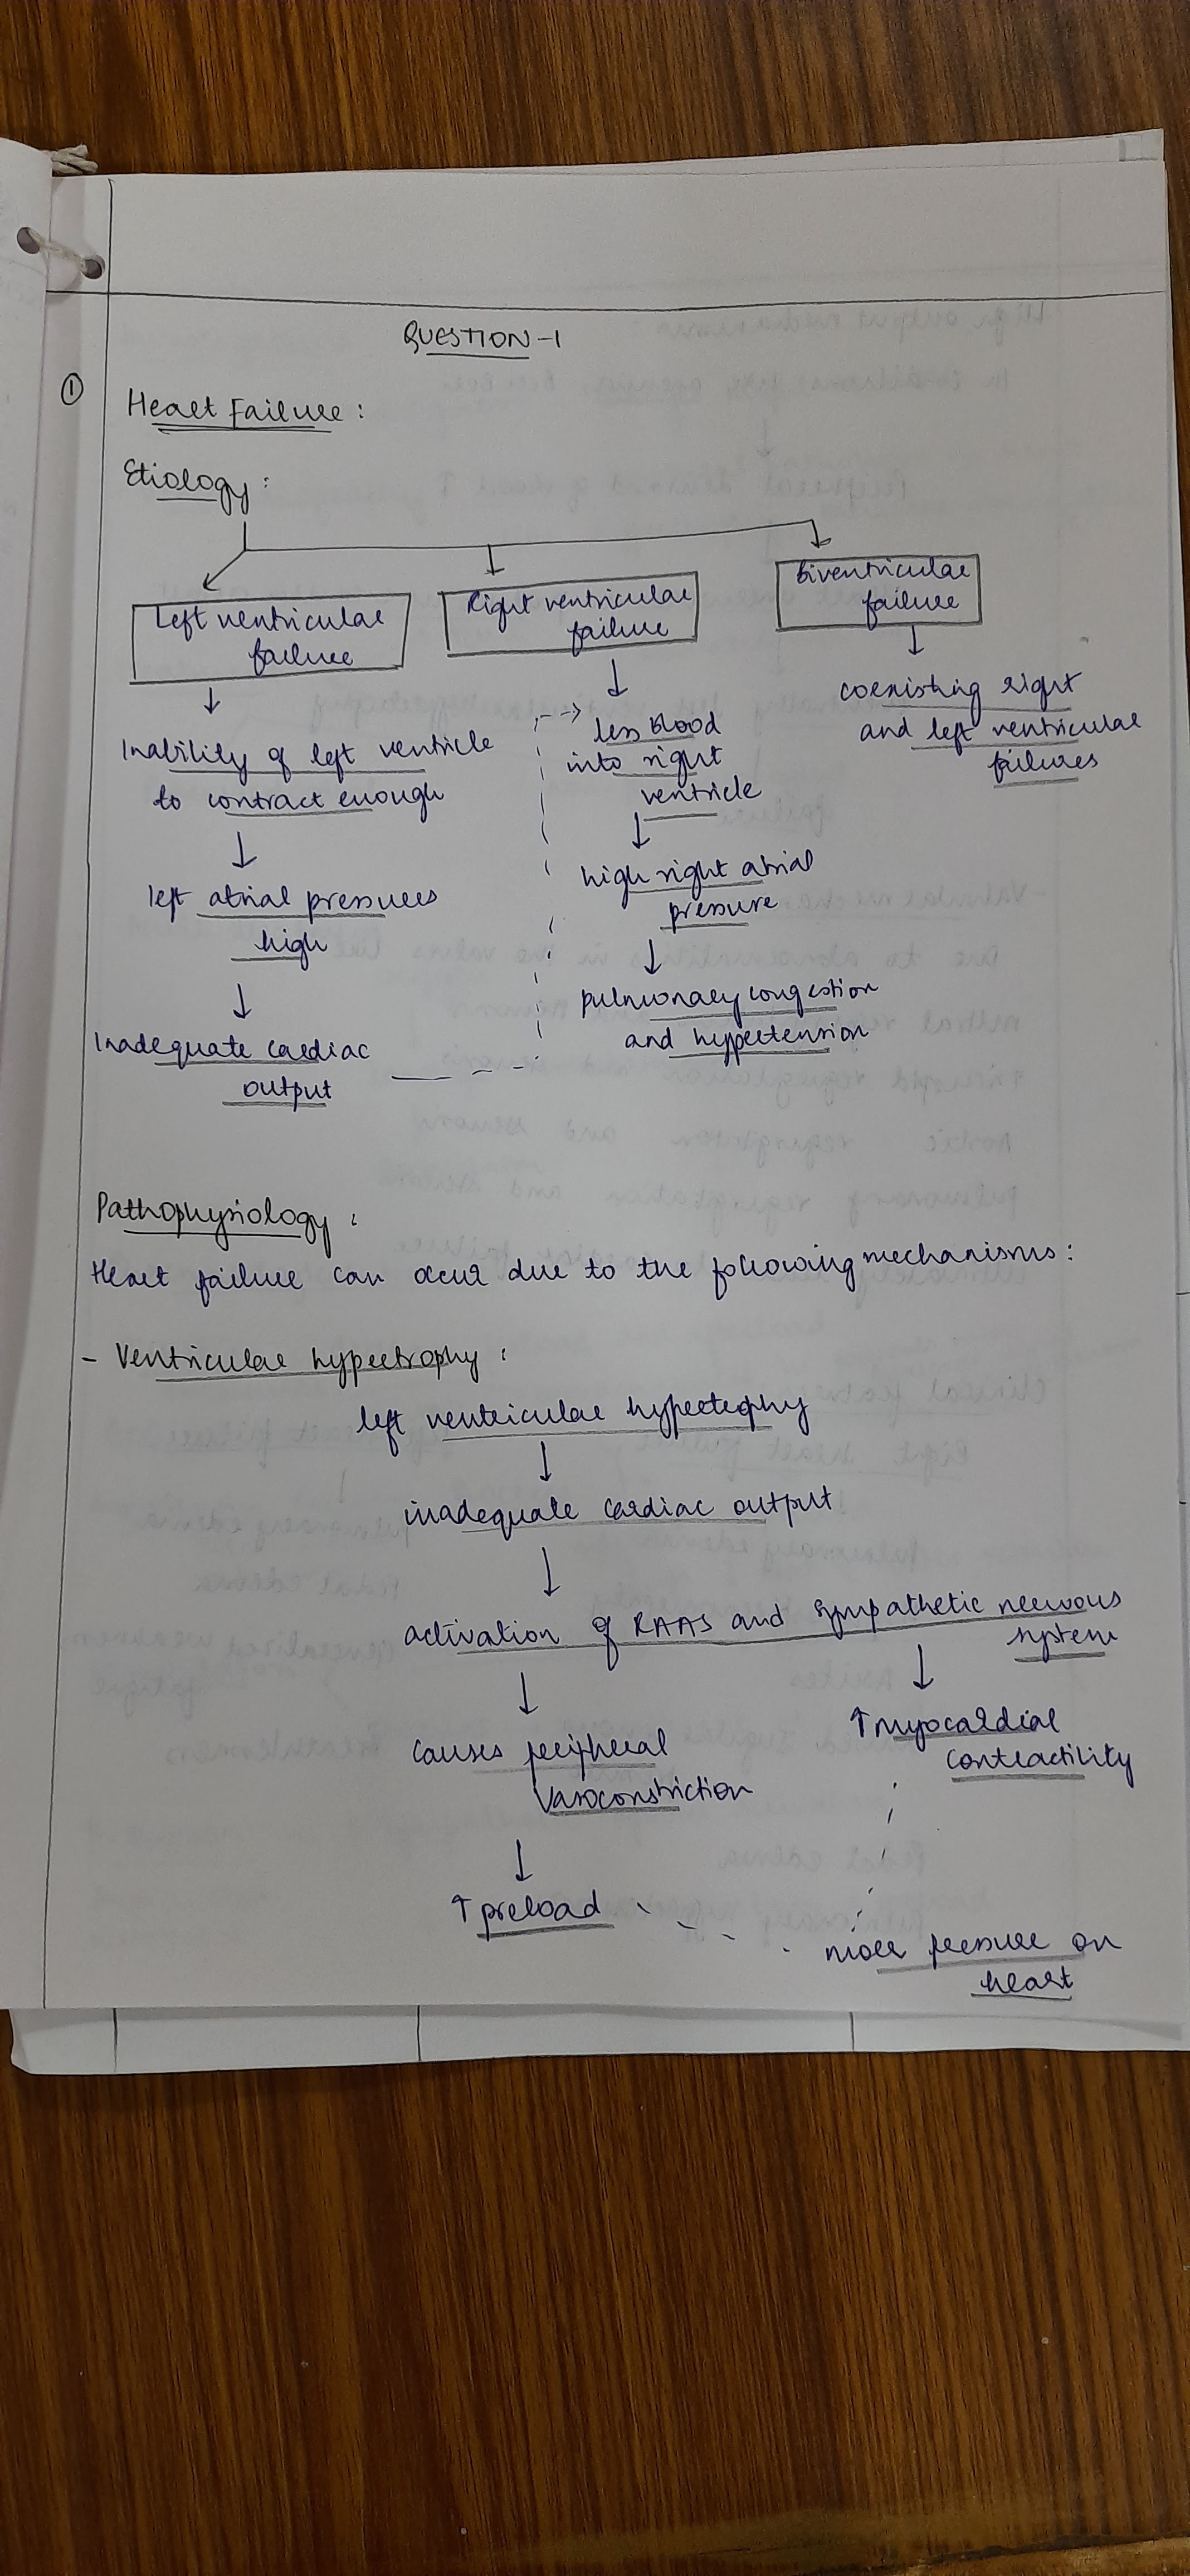 QUESTION-1
①
Heart Failure:
Etiology:
Left ventricular
failure
Right ventricular
failure
Biventricular
failure
Inability of left ventricle
to contract enough
left atrial pressures
high
Inadequate cardiac
output
less blood
into right
ventricle
high right atrial
pressure
pulmonary congestion
and hypertension
coexisting right
and left ventricular
failures
Pathophysiology:
Heart failure can occur due to the following mechanisms:
- Ventricular hypertrophy:
left ventricular hypertrophy
inadequate cardiac output
activation of RAAS and sympathetic nervous
system
causes peripheral
vasoconstriction
↑ preload
↑ myocardial
contractility
more pressure on
heart